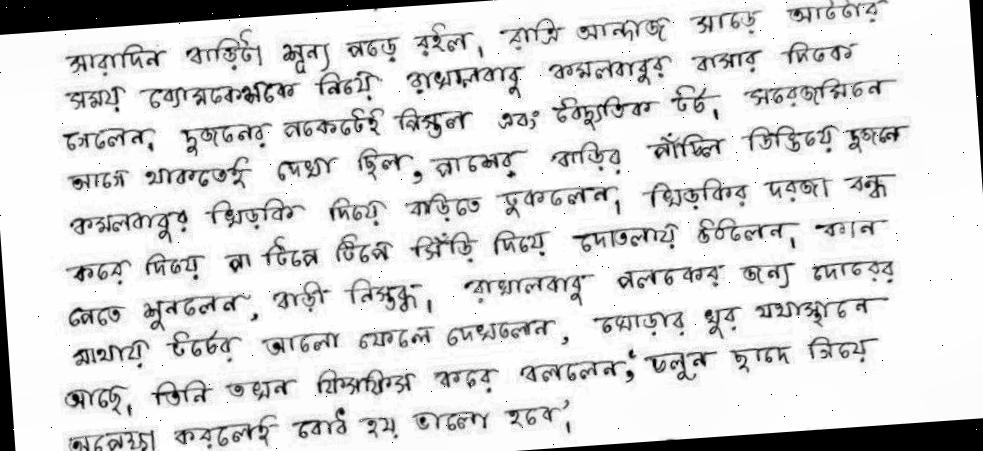 সারাদিন বাড়িটা শূন্য পড়ে রইল, রাত্রি আন্দাজ সাড়ে আটটার
সময় ব্যোমকেশকে নিয়ে রাখালবাবু কমলবাবুর বাসার দিকে
গেলেন, দুজনের পকেটেই পিস্তল এবং বৈদ্যুতিক টর্চ, সরেজমিনে
আগে থাকতেই দেখা ছিল, পাশের বাড়ির পাঁচিল ডিঙিয়ে দুজনে
কমলবাবুর খিড়কি দিয়ে বাড়িতে ঢুকলেন, খিড়কির দরজা বন্ধ
করে দিয়ে পা টিপে টিপে সিঁড়ি দিয়ে দোতলায় উঠলেন, কান
পেতে শুনলেন, বাড়ী নিস্তব্ধ, রাখালবাবু পলকের জন্যে দোরের
মাথায় টর্চের আলো ফেলে দেখলেন, ঘোড়ার খুর যথাস্থানে
আছে, তিনি তখন ফিসফিস করে বললেন, 'চলুন ছাদে গিয়ে
অপেক্ষা করলেই বোধ হয় ভালো হবে',